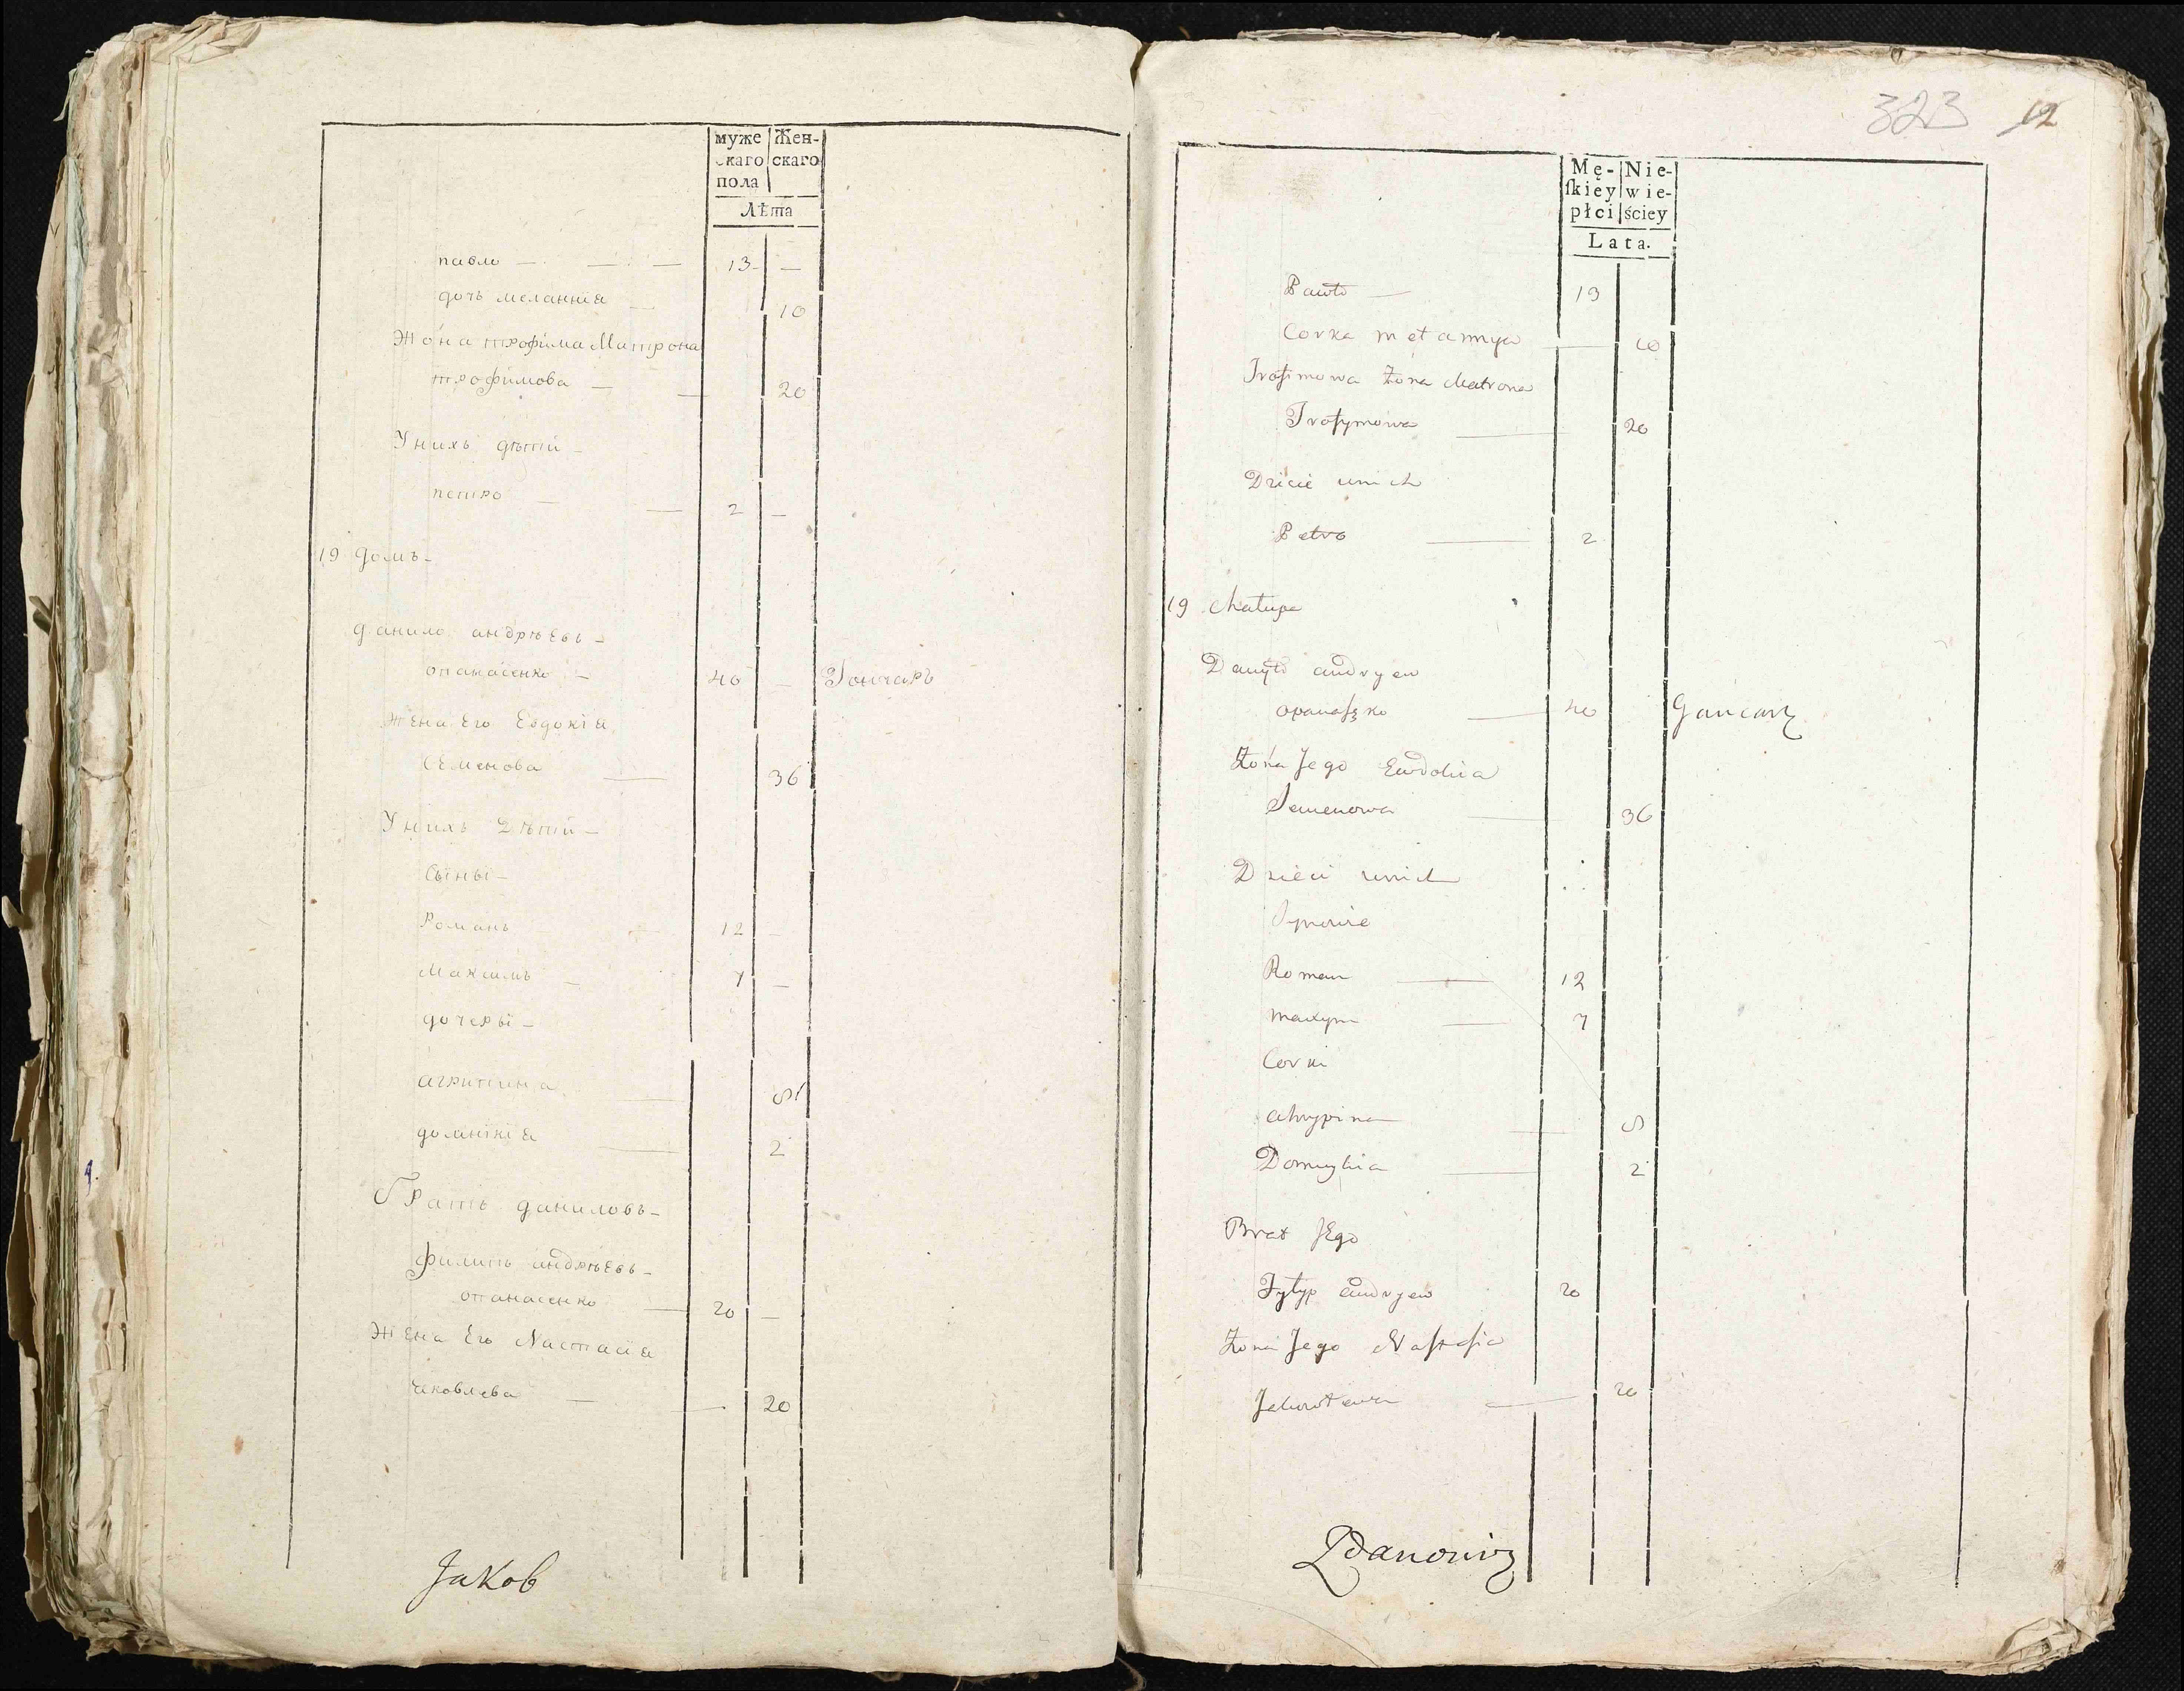 муже Жен-
скаго скаго
пола
Лѣта
павло — — — 13 —
дочь меланнія — 10
Жона трофима Матрона
трофимова — — 20
Унихъ дѣтй
петро — — 2 —
19 домъ
данило андрѣевъ
опанасенко — 40 — Гончаръ
жена его Евдокія
Семенова — 36
Унихъ Дѣтй
Сыны
Романъ 12 —
Максимъ — 7 —
дочеры
агрипина — 8
домнікія — 2
братъ даниловъ
филипъ андрѣевъ
опанасенко — 20 —
Жена Его Настасія
яковлева — — 20
Jakob
323 12
Mę- Nie-
ſkiey wie-
płci ściey
Lata.
Pawło — 13
Corka Mełannya — 10
Trofimowa Żona Matrona
Trofymowa — 20
Dzicie unich
Petro — 2
19 Chałupa
Danyło andryew
opanaſzko — 40 Gancarz
Żona Jego Ewdokia
Semenowa — 36
Dzieci unich
Synowie
Roman — 12
maxym — 7
Corki
ahrypina — 8
Domnykia — 2
Brat JEgo
Fyłyp andryew 20
Żona Jego Naſtaſia
Jakowlewa — 20
Zdanowicz